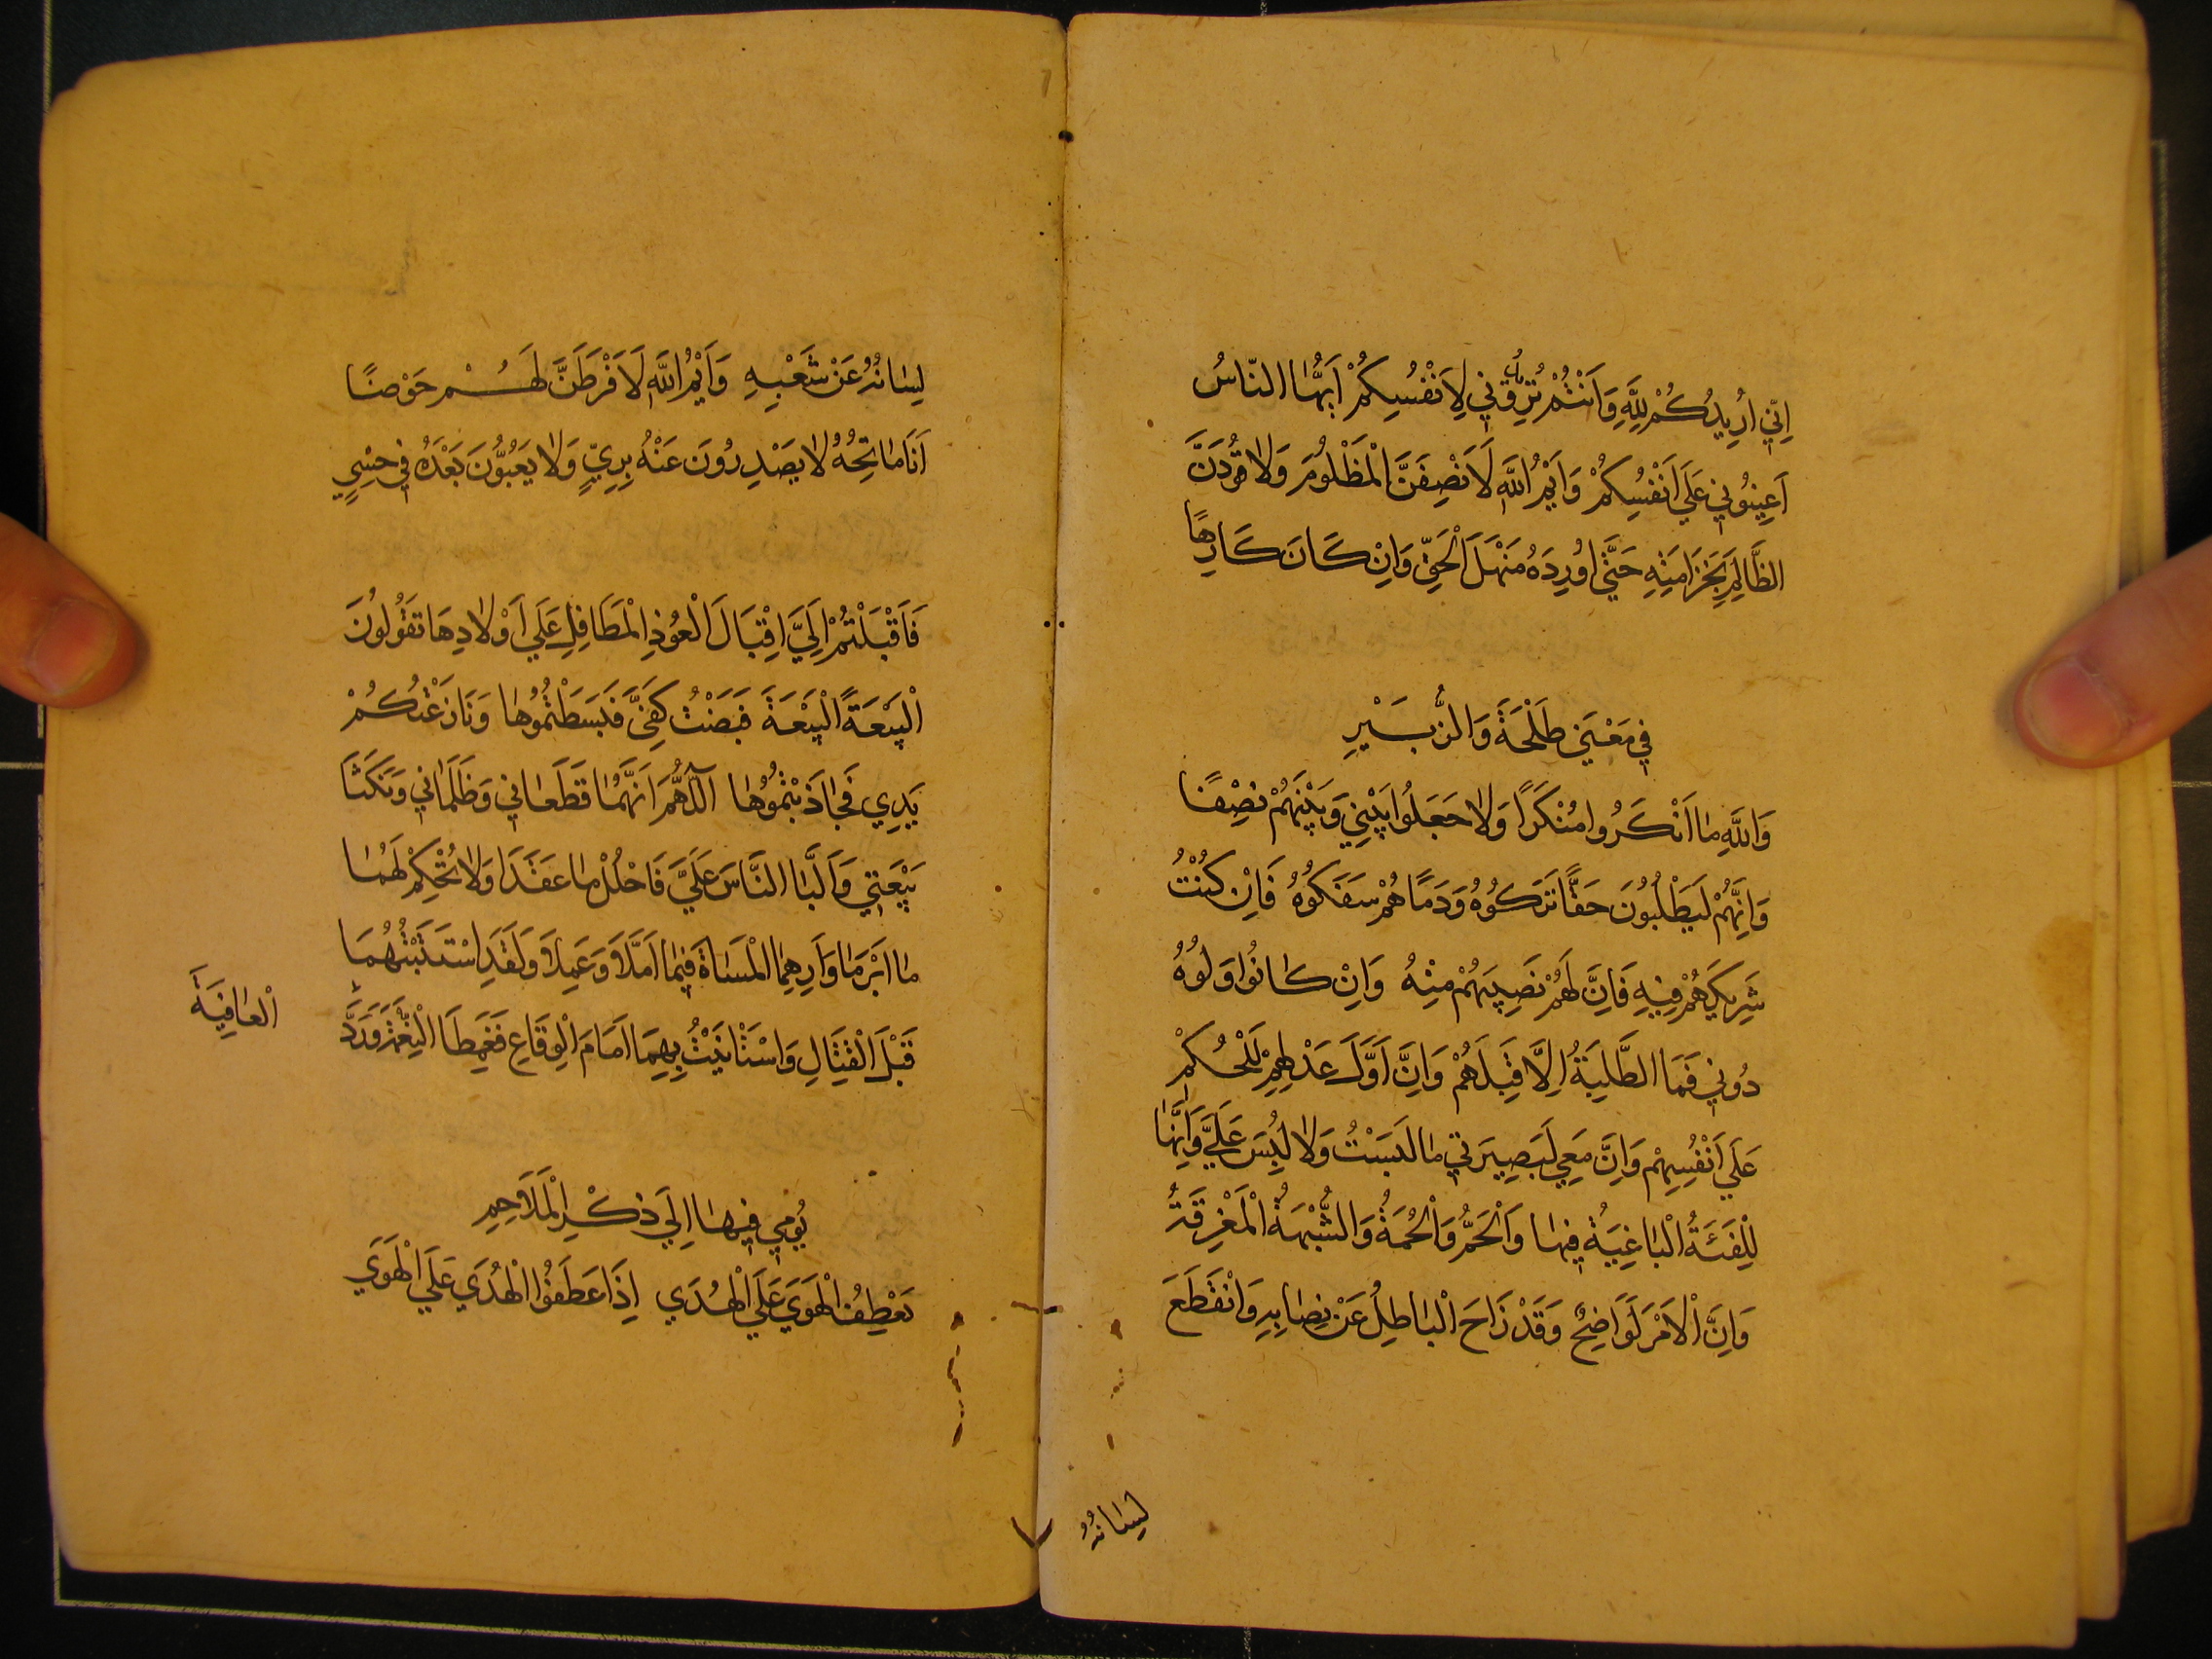 اِنِّي اُرِيدُكُمْ لِلَّهِ وَاَنْتُمْ تُرِيدُونَنِي لِاَنْفُسِكُمْ اَيُّهَا النَّاسُ
اَعِينُونِي عَلَي اَنْفُسِكُمْ وَاَيْمُ اللَّهِ لَاَنْصِفَنَّ الْمَظْلُومَ وَلَاَقُودَنَّ
الظَّالِمَ بِخَزَامَتِهِ حَتَّي اُورِدَهُ مَنْهَلَ الْحَقِّ وَاِنْ كَانَ كَارِهًا
فِي مَعْنَي طَلْحَةَ وَالزُّبَيْرِ
وَاللَّهِ مَا اَنْكَرُوا مُنْكَرًا وَلَا جَعَلُوا بَيْنِي وَبَيْنَهُمْ نِصْفًا
وَاِنَّهُمْ لَيَطْلُبُونَ حَقًّا تَرَكُوهُ وَدَمًا هُمْ سَفَكُوهُ فَاِنْ كُنْتُ
شَرِيكَهُمْ فِيهِ فَاِنَّ لَهُمْ نَصِيبَهُمْ مِنْهُ وَاِنْ كَانُوا وَلُوهُ
دُونِي فَمَا الطَّلِبَةُ اِلَّا قِبَلَهُمْ وَاِنَّ اَوَّلَ عَدْلِهِمْ لَلْحُكْمُ
عَلَي اَنْفُسِهِمْ وَاِنَّ مَعِي لَبَصِيرَتِي مَا لَبَسْتُ وَلَا لُبِسَ عَلَيَّ وَاِنَّهَا
لِلْفِئَةُ الْبَاغِيَةُ فِيهَا وَالْحَمُّ وَالْحُمَةُ وَالشُّبْهَةُ الْمُغْرِقَةُ
وَاِنَّ الْاَمْرَ لَوَاضِحٌ وَقَدْ زَاحَ الْبَاطِلُ عَنْ نِصَابِهِ وَانْقَطَعَ
لِسَانُهُ
لِسَانُهُ عَنْ شَغْبِهِ وَاَيْمُ اللَّهِ لَاَفْرُطَنَّ لَهُمْ حَوْضًا
اَنَا مَاتِحُهُ لَا يَصْدِرُونَ عَنْهُ بِرِيٍّ وَلَا يَعُبُّونَ بَعْدَهُ فِي حَسْيٍ
فَاَقْبَلْتُمْ اِلَيَّ اِقْبَالَ الْعُوذِ الْمَطَافِلِ عَلَي اَوْلَادِهَا تَقُولُونَ
الْبَيْعَةَ الْبَيْعَةَ قَبَضْتُ كَفِّي فَبَسَطْتُمُوهَا وَنَازَعْتُكُمْ
يَدِي فَجَاذَبْتُمُوهَا اَللّٰهُمَّ اِنَّهُمَا قَطَعَانِي وَظَلَمَانِي وَنَكَثَا
بَيْعَتِي وَاَلَّبَا النَّاسَ عَلَيَّ فَاحْلُلْ مَا عَقَدَا وَلَا تُحْكِمْ لَهُمَا
مَا اَبْرَمَا وَاَرِهِمَا الْمَسَاةَ فِيمَا اَمَّلَا وَعَمِلَا وَلَقَدِ اسْتَثَبْتُهُمَا
قَبْلَ الْقِتَالِ وَاسْتَاْنَيْتُ بِهِمَا اَمَامَ الْوِقَاعِ فَغَمِطَا النِّعْمَةَ وَرَدَّا
الْعَافِيَةَ
يُومِي فِيهَا اِلَي ذِكْرِ الْمَلَاحِمِ
يَعْطِفُ الْهَوَي عَلَي الْهُدَي اِذَا عَطَفُوا الْهُدَي عَلَي الْهَوَي